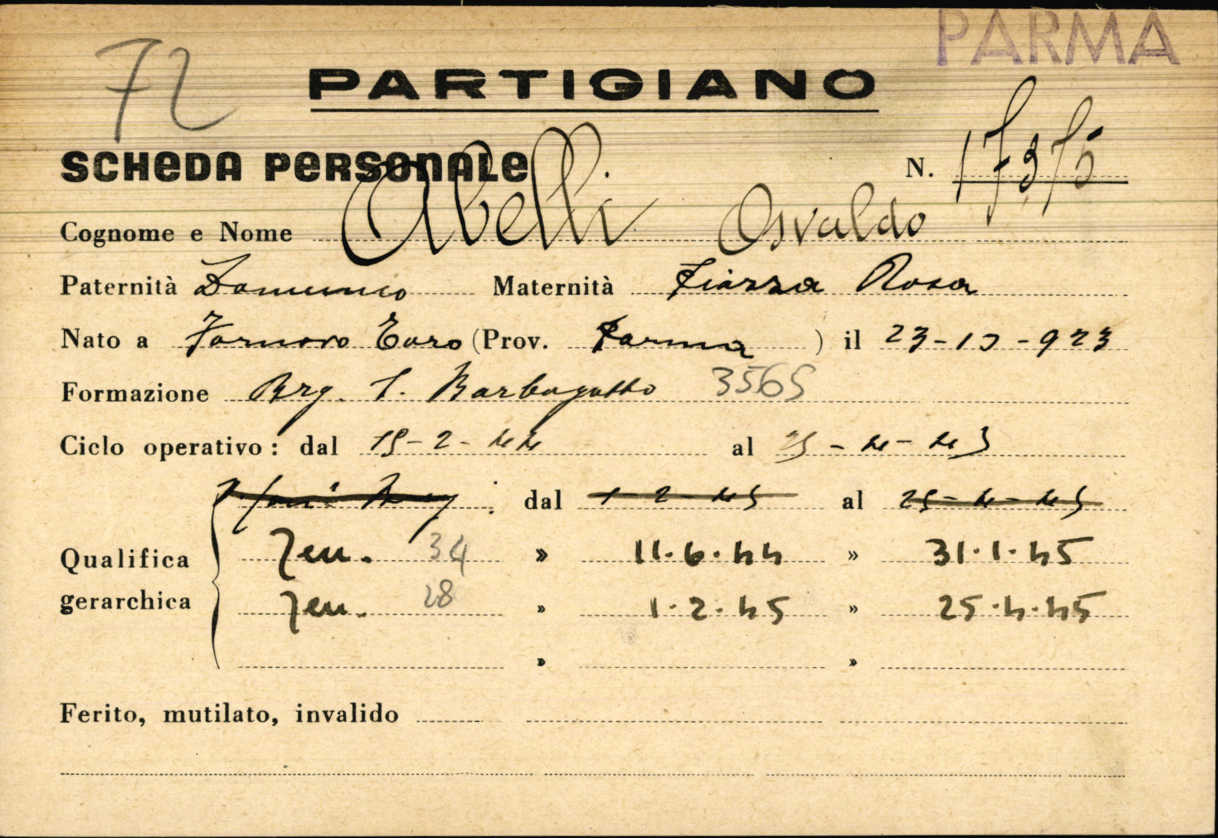 PARMA
72
PARTIGIANO
SCHEDA PERSONALE N. 17375
Cognome e Nome Abelli Osvaldo
Paternità Domenico Maternità Piazza Rosa
Nato a Fornovo Taro (Prov. Parma) il 23-10-923
Formazione Brg. T. Barbagatto 3565
Ciclo operativo: dal 15-2-44 al 25-4-45
dal 1-2-45 al 25-4-45
Qualifica gerarchica Ten. 34 » 11.6.44 » 31.1.45
Ten. 28 » 1.2.45 » 25.4.45
» »
Ferito, mutilato, invalido